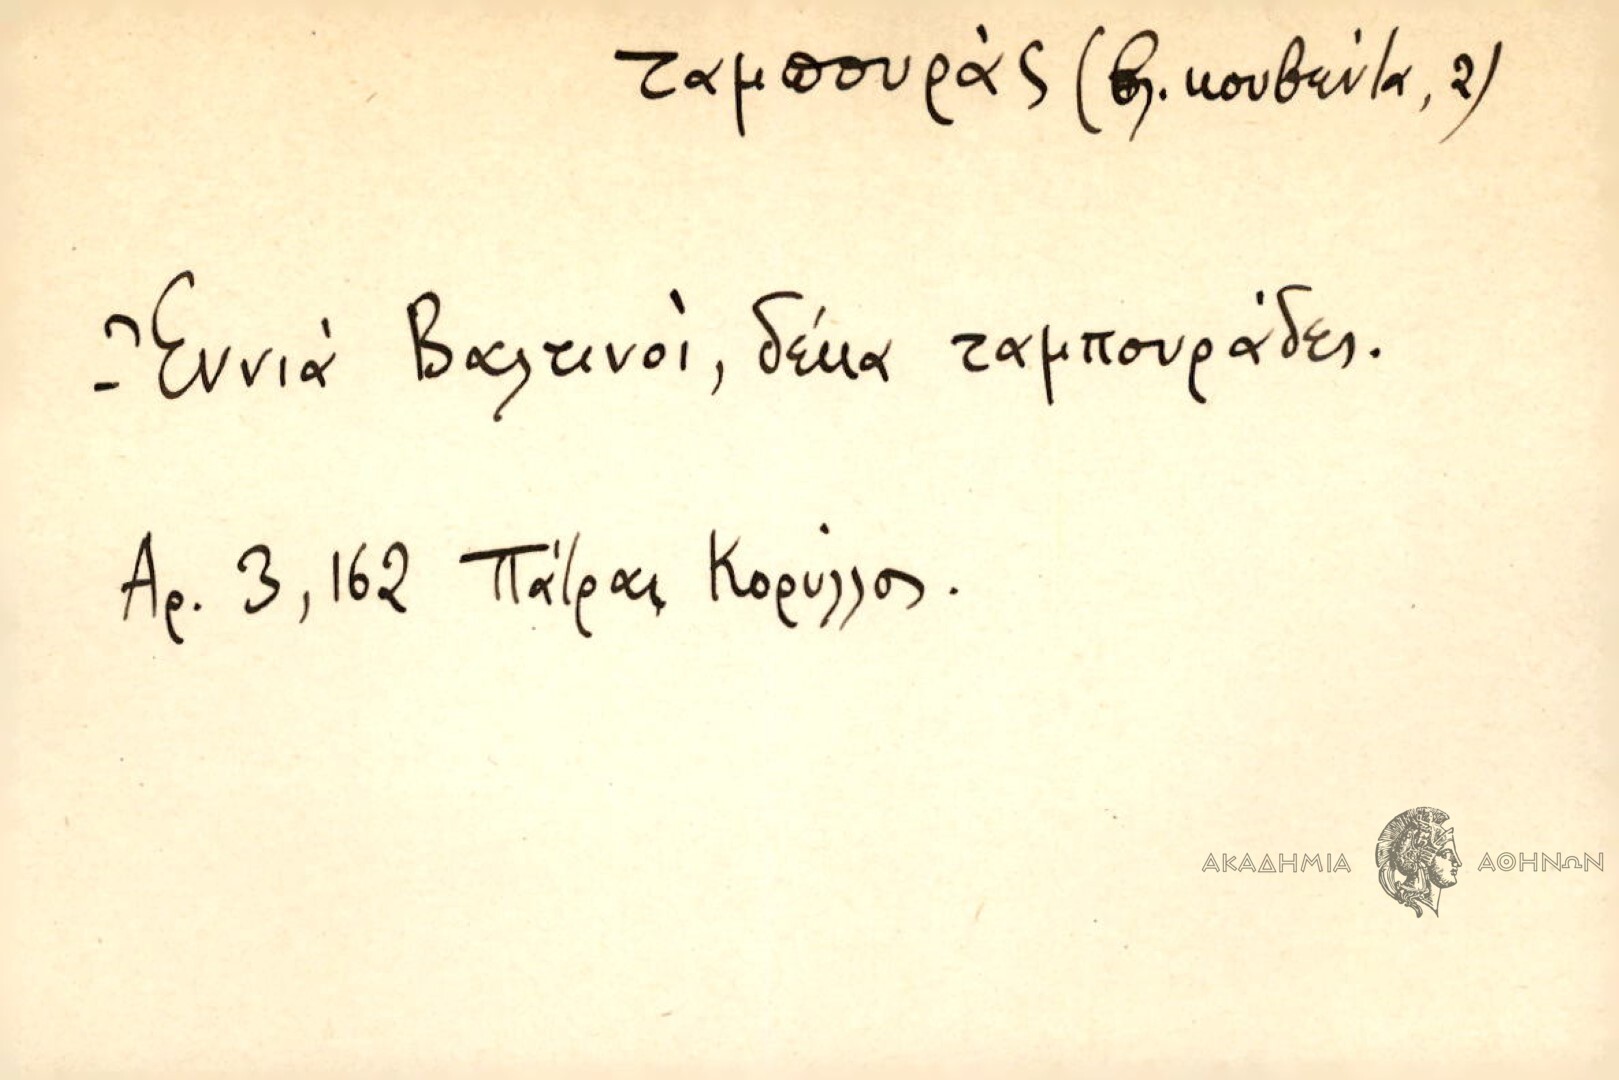 ταμπουράς (βλ. κουβέντα, 2)
- Ἐννιά Βαλτινοί, δέκα ταμπουράδες.
Αρ. 3, 162 Πάτραι Κορύλλος.
ΑΚΑΔΗΜΙΑ ΑΘΗΝΩΝ